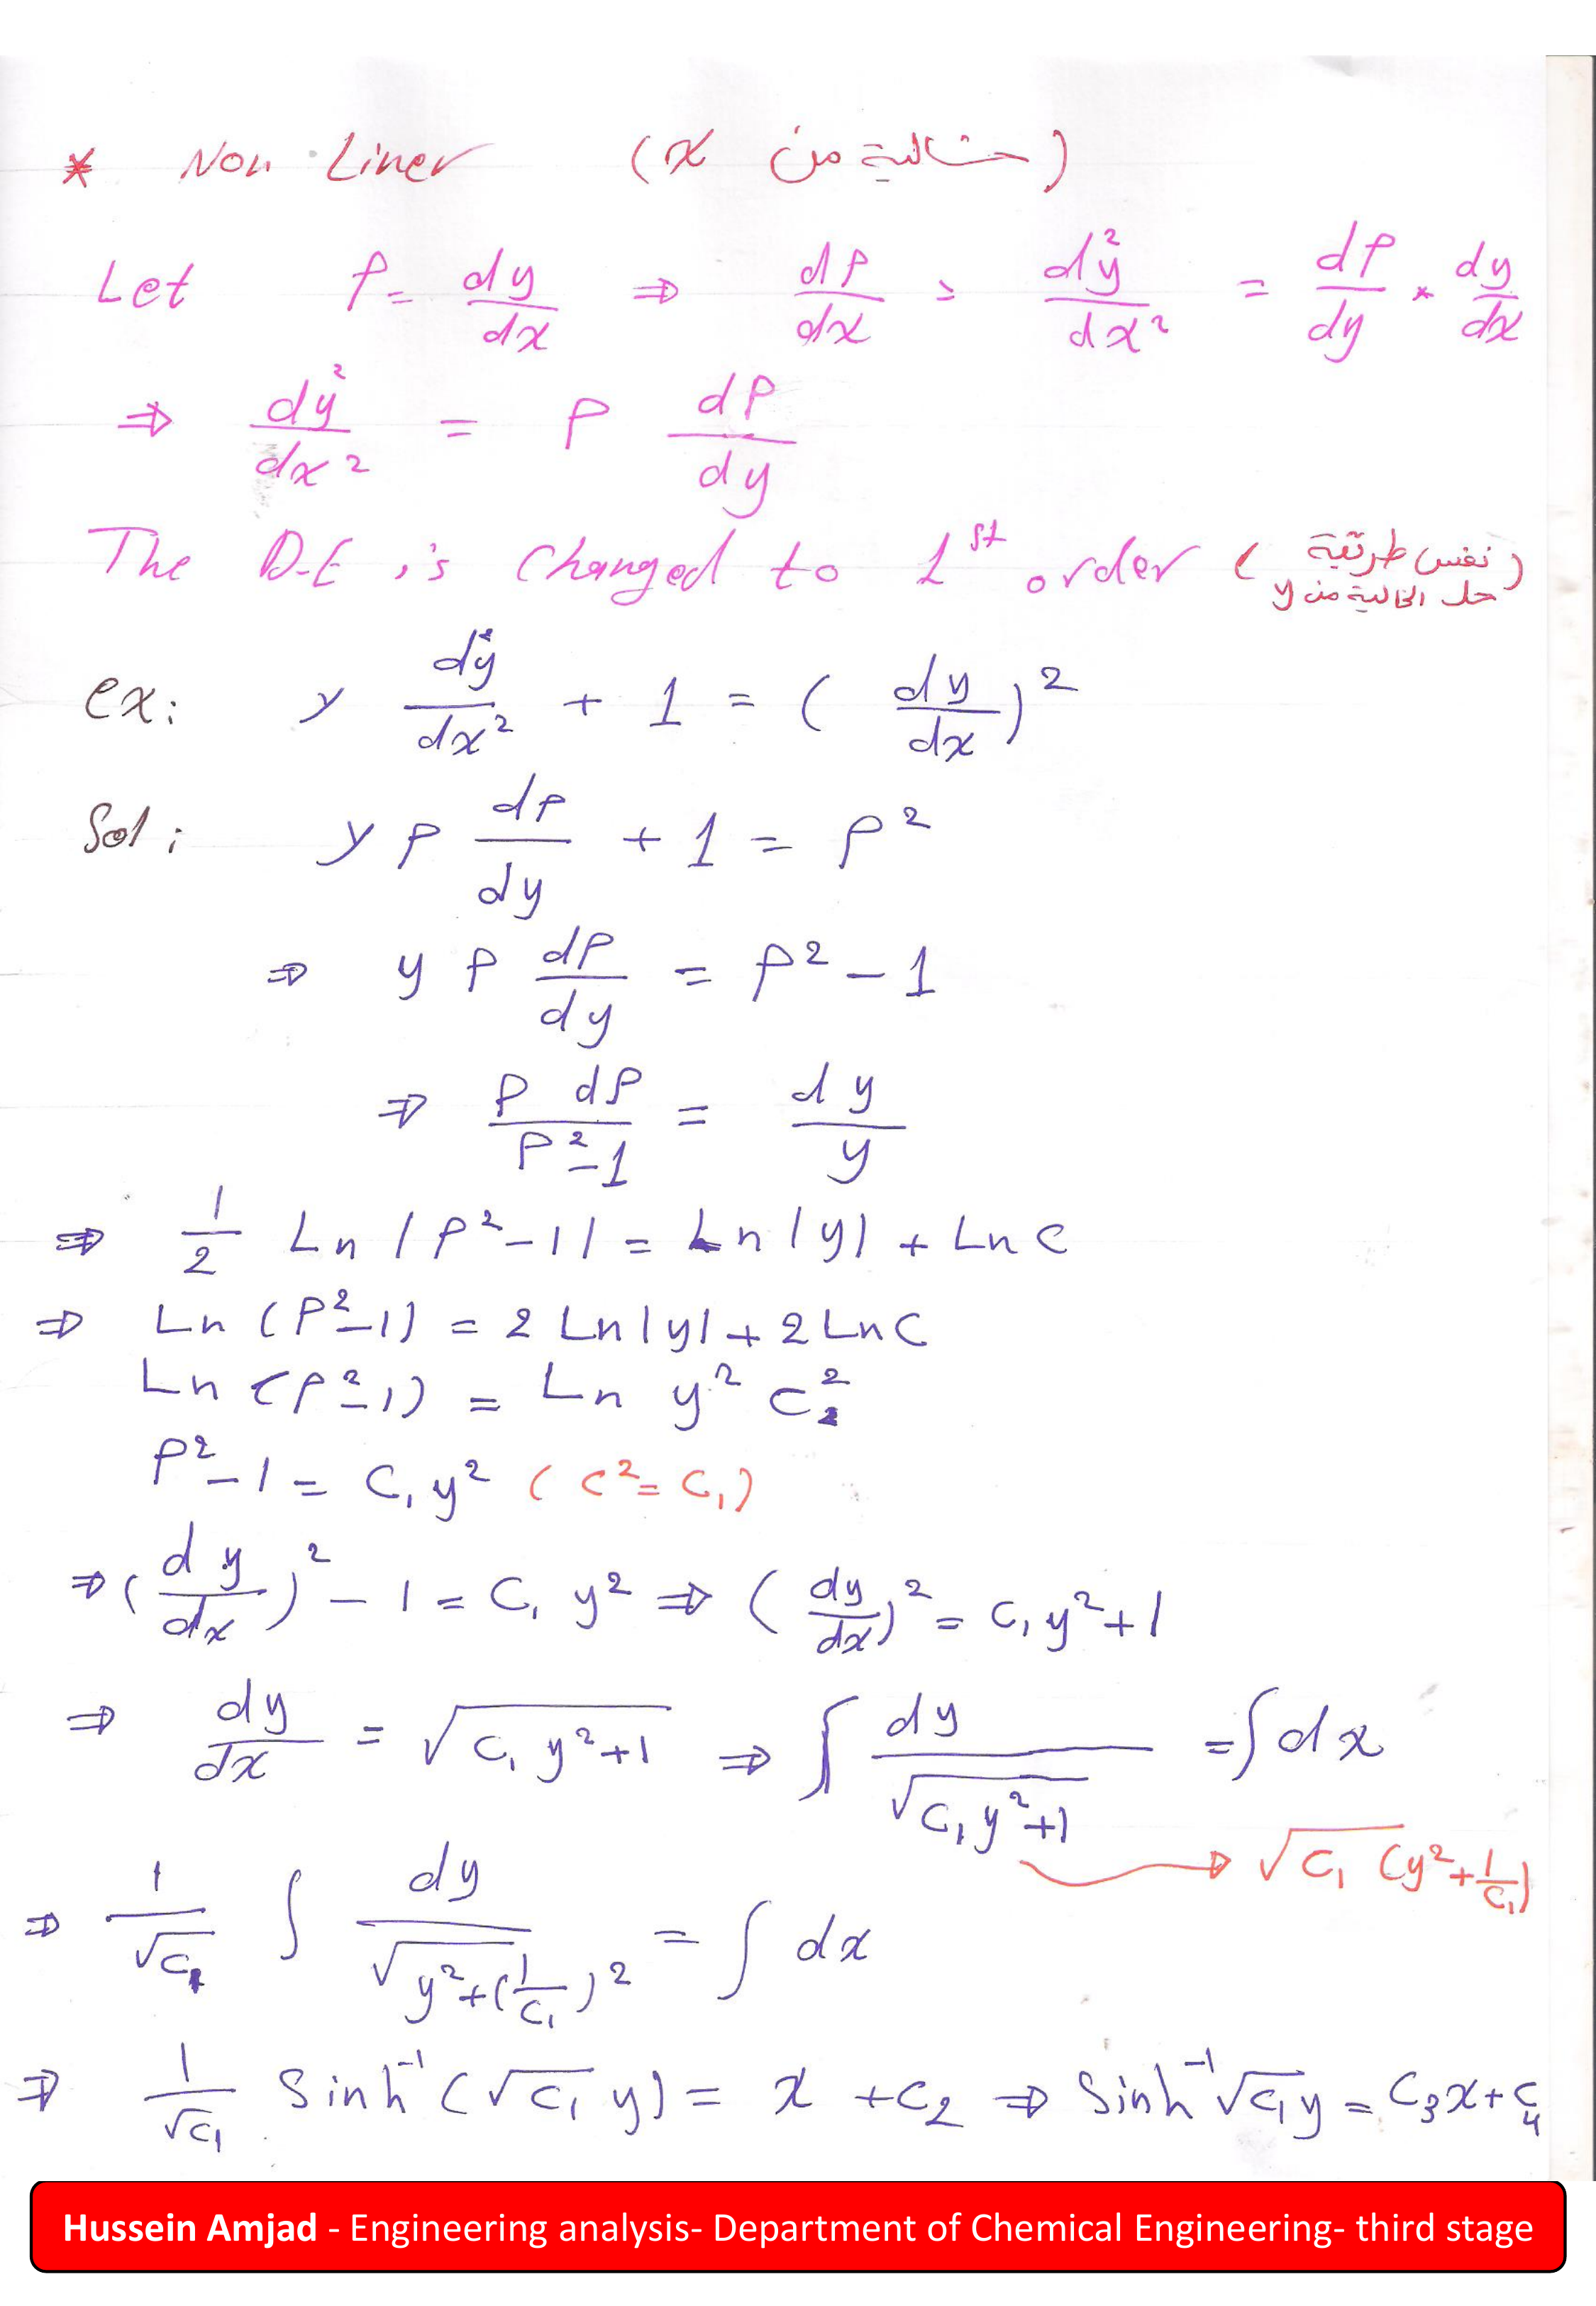 * Non Liner (خالية من x)
Let P = dy/dx ⇒ dP/dx = d²y/dx² = dP/dy * dy/dx
⇒ dy²/dx² = P dP/dy
The D.E is changed to 1st order (نفس طريقة
حل الخالية من y)
ex: y d²y/dx² + 1 = (dy/dx)²
Sol: y P dP/dy + 1 = P²
⇒ y P dP/dy = P² - 1
⇒ P dP/P²-1 = dy/y
⇒ 1/2 Ln |P²-1| = Ln |y| + Ln C
⇒ Ln (P²-1) = 2 Ln |y| + 2 Ln C
Ln (P²-1) = Ln y² C²
P²-1 = C₁ y² (C² = C₁)
⇒ (dy/dx)² - 1 = C₁ y² ⇒ (dy/dx)² = C₁ y² + 1
⇒ dy/dx = √(C₁ y²+1) ⇒ ∫ dy/√(C₁ y²+1) = ∫ dx
→ √C₁ (y² + 1/C₁)
⇒ 1/√C₁ ∫ dy/√y²+(1/C₁)² = ∫ dx
⇒ 1/√C₁ Sinh⁻¹ (√C₁ y) = x + C₂ ⇒ Sinh⁻¹ √C₁ y = C₃x + C₄
Hussein Amjad - Engineering analysis- Department of Chemical Engineering- third stage